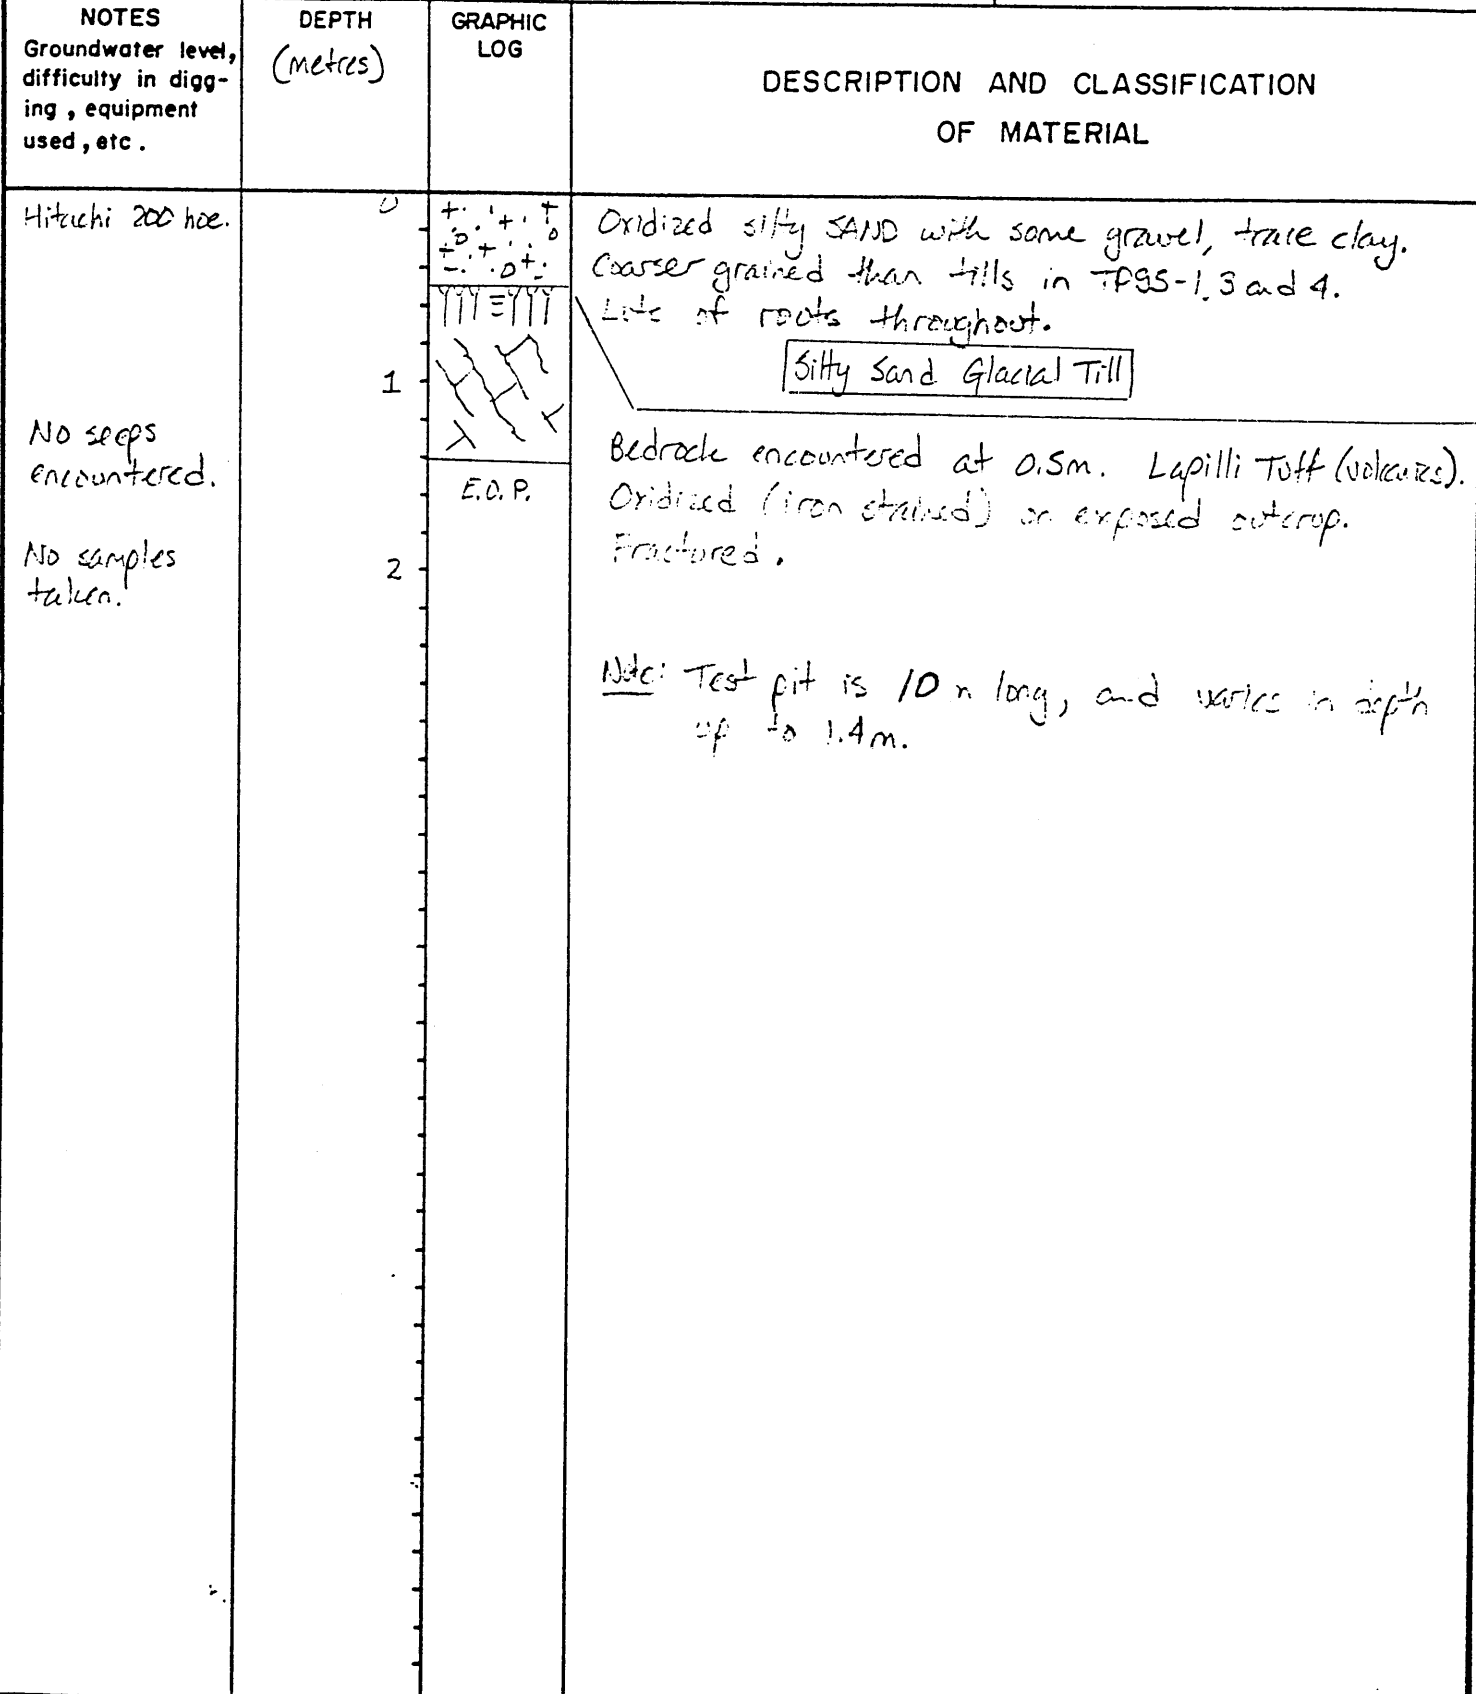 NOTES
Groundwater level,
difficulty in digg-
ing , equipment
used , etc .
DEPTH
(metres)
GRAPHIC
LOG
DESCRIPTION AND CLASSIFICATION
OF MATERIAL
Hitachi 200 hoe.
No seeps
encountered.
No samples
taken.
0
1
2
E.O.P.
Oxidized silty SAND with some gravel, trace clay.
Coarser grained than tills in TP95-1, 3 and 4.
Lots of roots throughout.
Silty Sand Glacial Till
Bedrock encountered at 0.5m. Lapilli Tuff (volcanics).
Oxidized (iron stained) on exposed outcrop.
Fractured.
Note: Test pit is 10 m long, and varies in depth
up to 1.4m.